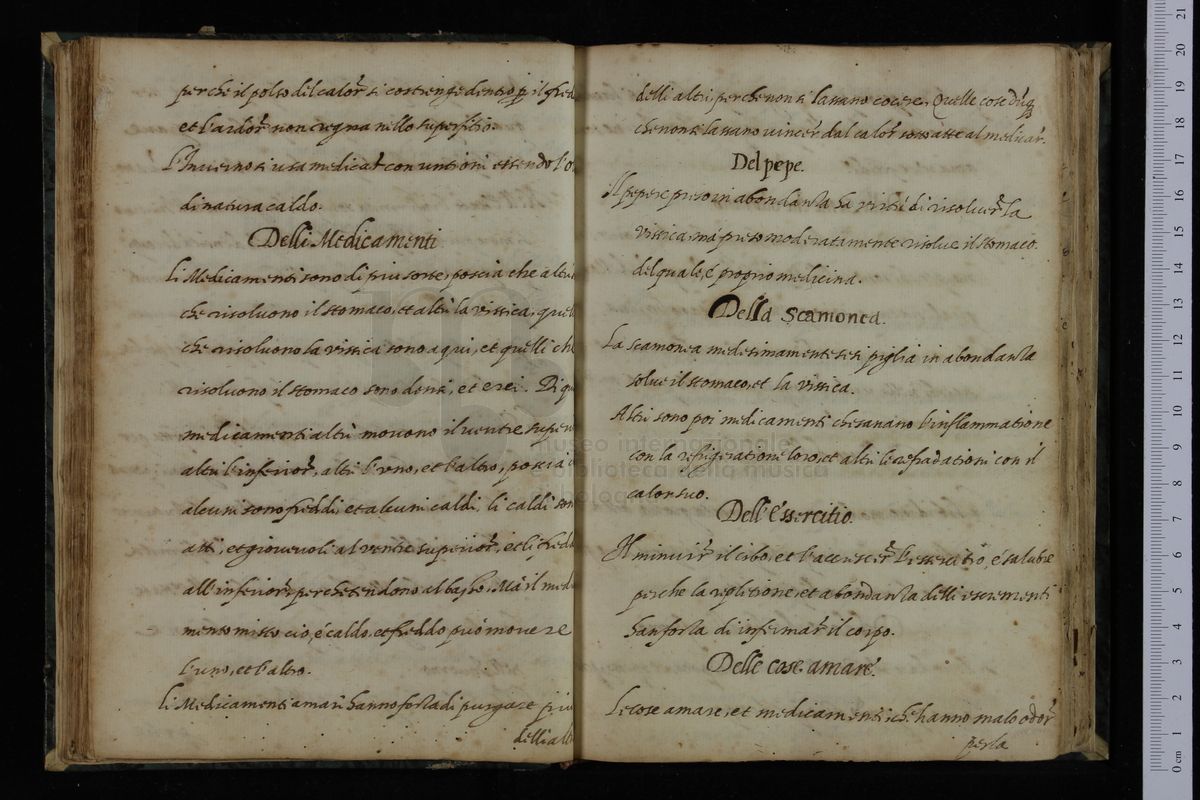 perche il polso del calor si costringe dentro p il fred
et l'ardor non regna nello superfitio.
l'Inuerno si usa medicar con untioni essendo l'o
di natura caldo.
Delli Medicamenti
Li Medicamenti sono di piu sorte, poscia che alcu
che risoluono il stomaco, et altri la vissica, quel
che risoluono la vissica sono aqui, et quelli ch
risoluono il stomaco sono densi, et erei. Di qu
medicamenti altri movono il ventre super
altri l'inferior, altri l'uno, et l'altro, poscia
alcuni sono freddi, et alcuni caldi, li caldi son
atti, et giovevoli al ventre superior, et li fredd
all'inferior, perche tendono al basso. Mà il med
mento misto cio, é caldo, et freddo può movere
l'uno, et l'altro.
li Medicamenti amari hanno forza di purgare piu
delli al
delli altri, perche non si lassano cocere. Quelle cose dunq
che non si lassano vincer dal calor sono atte al medicar.
Del pepe.
Il pepere preso in abondanza ha virtú di risoluer la
vissica, má preso moderatamente risolue il stomaco
del quale, é proprio medicina.
Della Scamonea.
La scamonea medesimamente se si piglia in abondanza
solue il stomaco, et la vissica.
Altri sono poi medicamenti che sanano l'inflammatione
con la refrigeratione loro, et altri le refradationi con il
calor suo.
Dell'éssercitio.
Il minuir il cibo, et l'accrescer l'essercitio, é salubre
perche la replitione, et abondanza delli escrementi
han forza di infermar il corpo.
Delle cose amare.
Le cose amare, et medicamenti, che hanno malo odor
per la
museo internazionale
e biblioteca della musica
di bologna